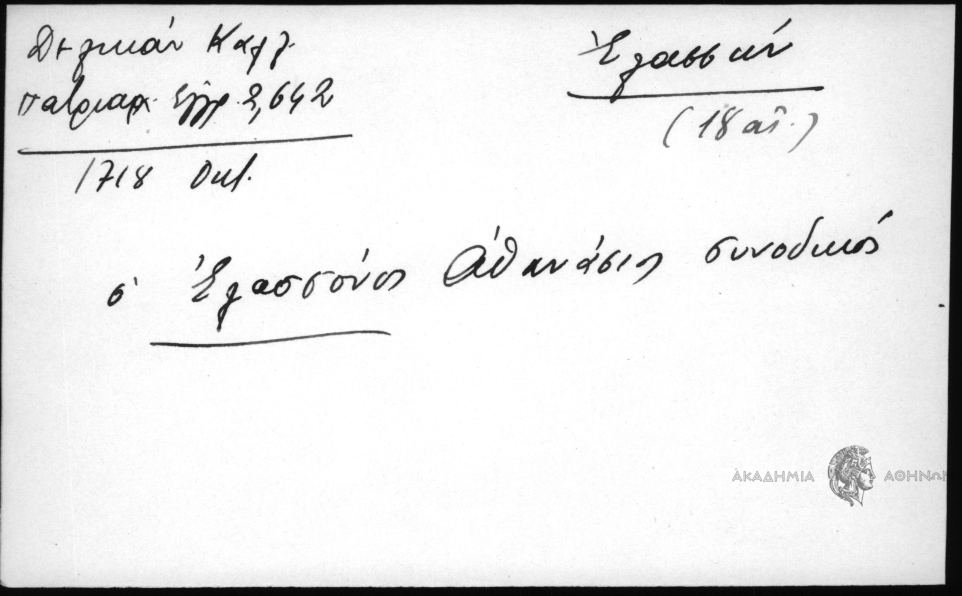 Δελικάν Καλλ.
πατριαρχ. Ἔγγρ. 2,642
1718 Οκτ.
Ἐλασσών
(18 αἰ.)
ὁ Ἐλασσόνος Ἀθανάσιος συνοδικός
ΑΚΑΔΗΜΙΑ ΑΘΗΝΩΝ